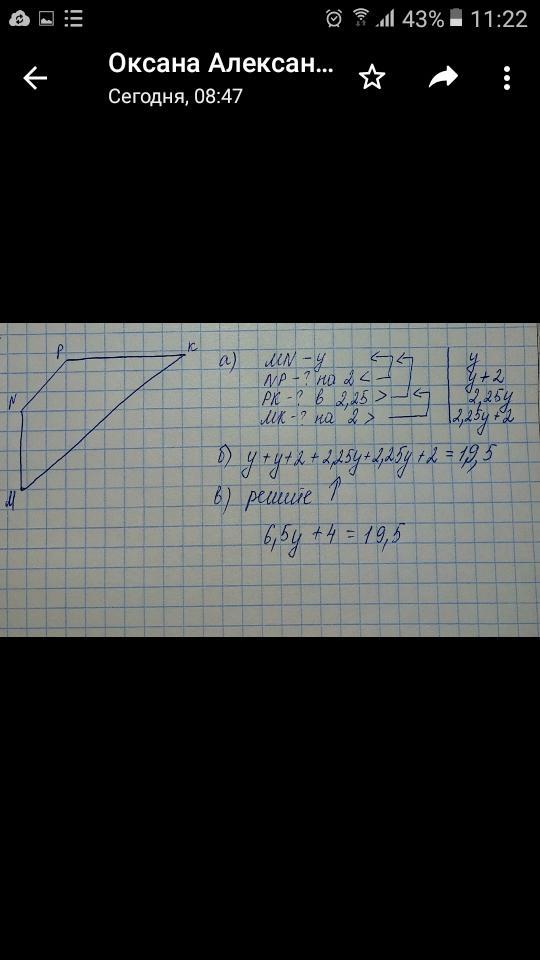 43% 11:22
Оксана Алексан...
Сегодня, 08:47
P
K
N
M
а) MN - y
NP - ? на 2 <
PK - ? в 2,25 >
MK - ? на 2 >
y
y + 2
2,25y
2,25y + 2
б) y + y + 2 + 2,25y + 2,25y + 2 = 19,5
в) решите ↑
6,5y + 4 = 19,5